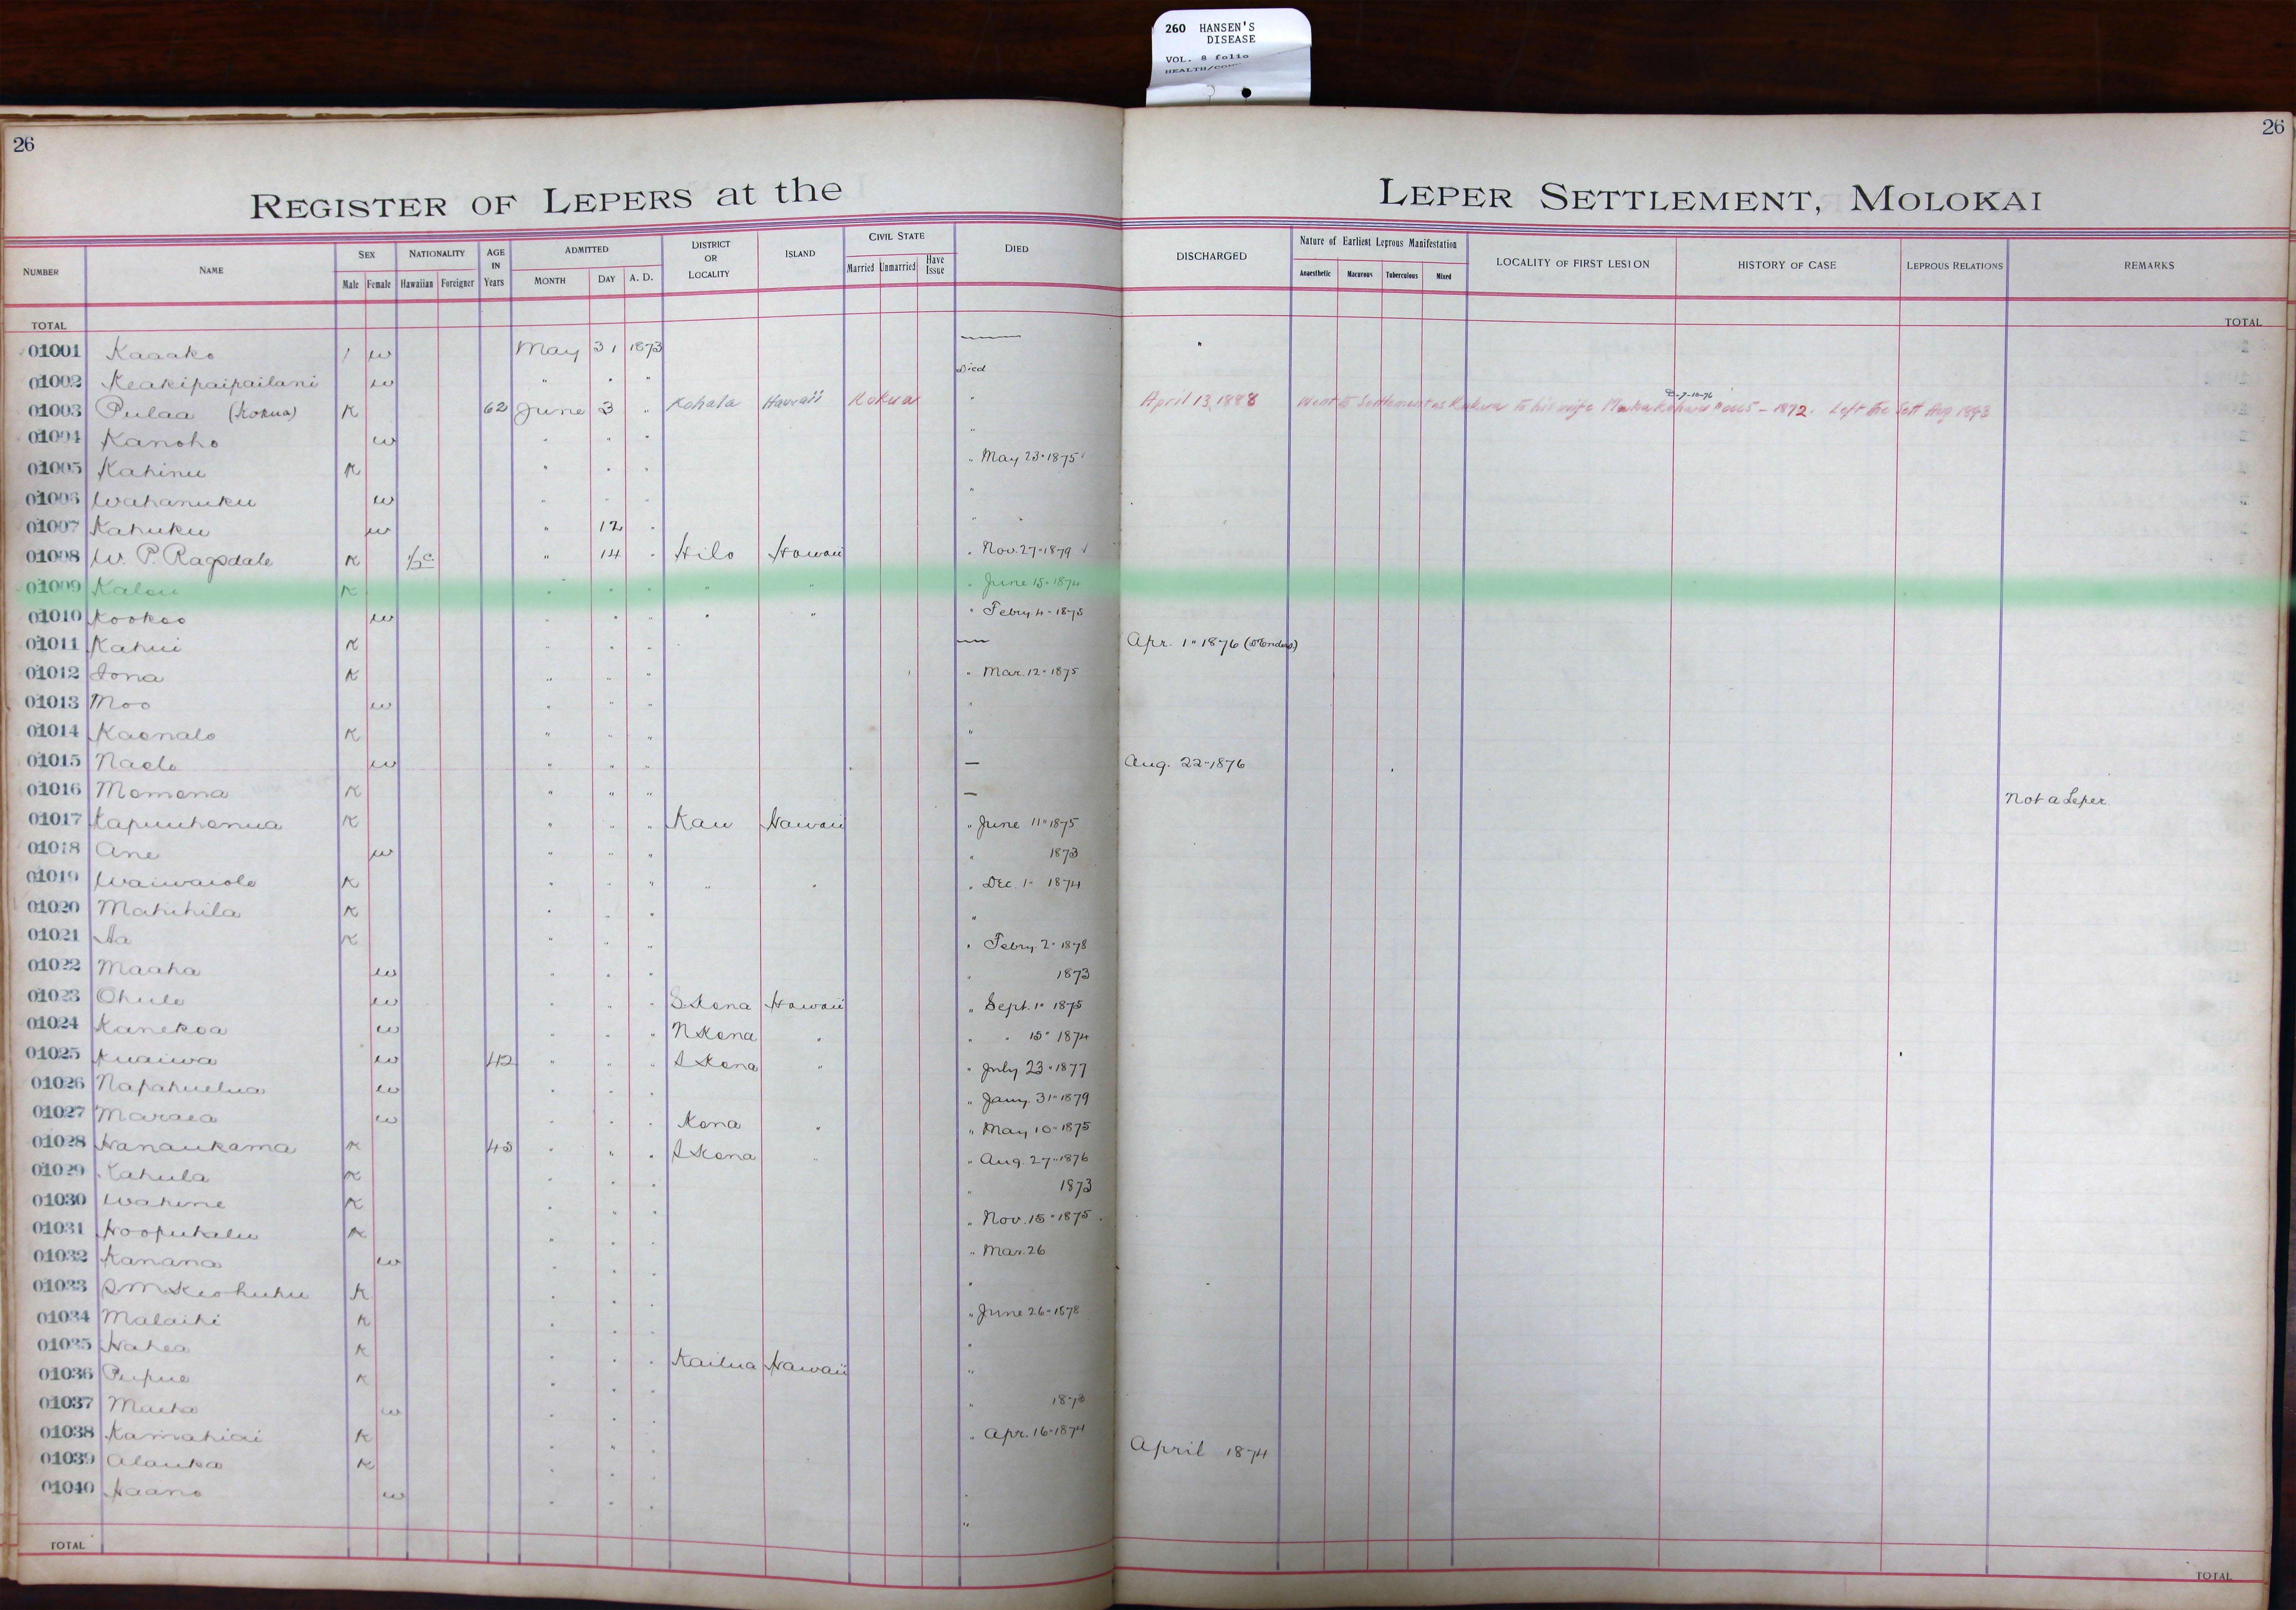 260 HANSEN'S
DISEASE
VOL. 8 folio
26
26
REGISTER OF LEPERS at the LEPER SETTLEMENT, MOLOKAI
NUMBER NAME SEX NATIONALITY AGE IN Years ADMITTED DISTRICT OR LOCALITY ISLAND CIVIL STATE DIED DISCHARGED Nature of Earliest Leprous Manifestation LOCALITY OF FIRST LESION HISTORY OF CASE LEPROUS RELATIONS REMARKS
Male Female Hawaiian Foreigner MONTH DAY A. D. Married Unmarried Have Issue Anaesthetic Macurous Tuberculous Mixed
TOTAL TOTAL
01001 Kaaako / w May 31 1873 — "
01002 Keakipaipailani w " " " Died
01003 Pulaa (Kokua) K 62 June 3 " Kohala Hawaii Kokua " April 13, 1888 Went to Settlement as Kokua to his wife 1872. Left the Sett Aug 1873
01004 Kanoho w " " " "
01005 Kahinu K " " " " May 23 " 1875
01006 Wahanuku w " " " "
01007 Kahuku w " 12 " "
01008 W. P. Ragsdale K 1/2 c " 14 " Hilo Hawaii " Nov. 27 " 1879 √
01009 Kalou K " " " " " " June 15 " 1874
01010 Kookoo w " " " " " " Febry 4 - 1875
01011 Kahui K " " " — Apr. 1 " 1876
01012 Iona K " " " " Mar. 12 " 1875
01013 Moo w " " " "
01014 Kaonalo K " " " "
01015 Naelo w " " " — Aug. 22 - 1876
01016 Momona K " " " — Not a Leper
01017 Kapuuhonua K " " " Kau Hawaii " June 11 " 1875
01018 Ane w " " " " 1873
01019 Waiwaiole K " " " " " " Dec. 1 " 1874
01020 Mahihila K " " " "
01021 Aa K " " " " Febry. 2 " 1878
01022 Maaha w " " " " 1873
01023 Ohule w " " " S. Kona Hawaii " Sept. 1 " 1875
01024 Kanekoa w " " " N Kona " " " 15 " 1874
01025 Kuaiwa w 42 " " " S Kona " " July 23 " 1877
01026 Napahuelua w " " " " Jany. 31 " 1879
01027 Maraea w " " " Kona " " May 10 " 1875
01028 Hanaukama K 45 " " " S Kona " " Aug. 27 " 1876
01029 Kahula K " " " " 1873
01030 Wahine K " " " " Nov. 15 " 1875
01031 Hoopukalu K " " " " Mar. 26
01032 Kanana w " " " "
01033 S M Keohuhu K " " " " June 26 " 1878
01034 Malaihi K " " " "
01035 Hahea K " " " Kailua Hawaii "
01036 Pupue K " " " " 1873
01037 Maeha w " " " " Apr. 16 " 1874
01038 Kamahiai K " " " April 1874
01039 Alauka K " " " "
01040 Haano w " " " "
TOTAL TOTAL